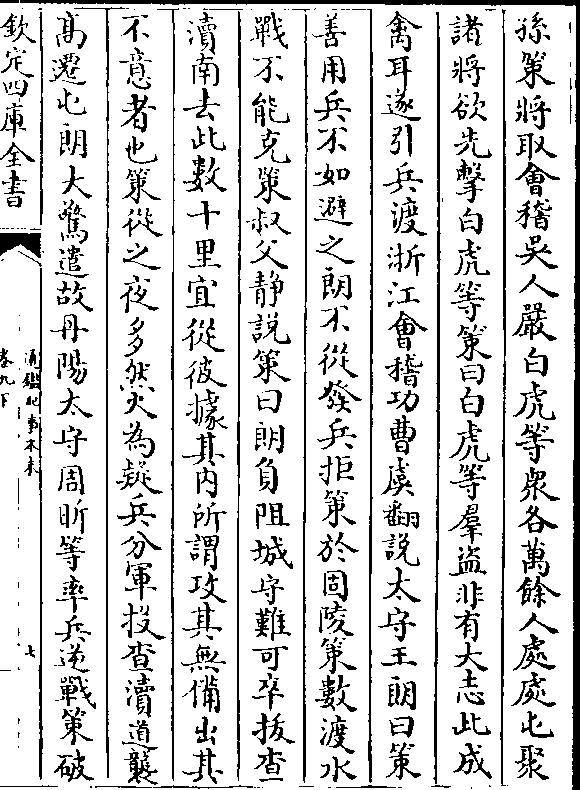 孫策將取會稽吳人嚴白虎等衆各萬餘人處處屯聚
諸將欲先擊白虎等策曰白虎等羣盜非有大志此成
禽耳遂引兵渡浙江會稽功曹虞翻說太守王朗曰策
善用兵不如避之朗不從發兵拒策於固陵策數渡水
戰不能克策叔父静説策曰朗負阻城守難可卒拔查
瀆南去此數十里宜從彼據其内所謂攻其無備出其
不意者也策從之夜多然火為疑兵分軍投查瀆道襲
髙遷屯朗大驚遣故丹陽太守周昕等率兵逆戰策破
欽定四庫全書
通鑑紀事本末
卷九下
七